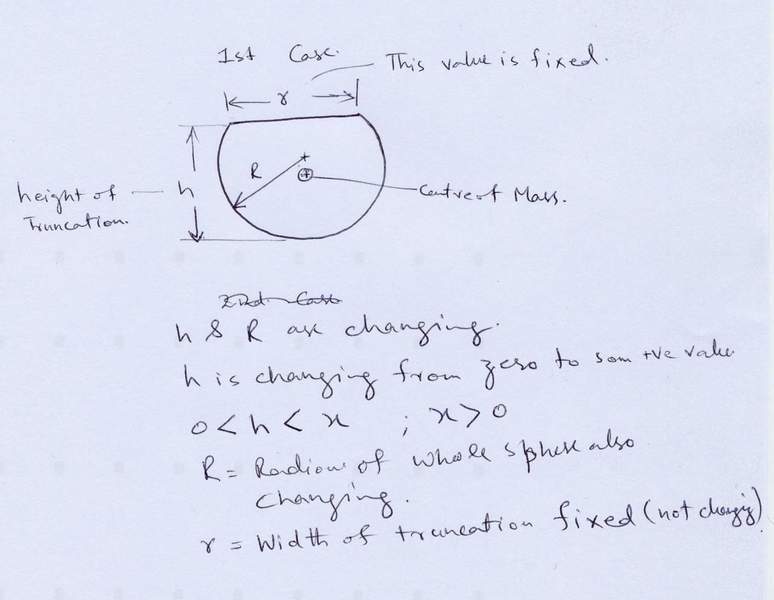 1st Case.
This value is fixed.
r
R
h
height of
Truncation.
Centre of Mass.
2nd Case
h & R are changing.
h is changing from zero to som +ve value
0 < h < x ; x > 0
R = Radious of whole sphere also
changing.
r = Width of truncation fixed (not changing)